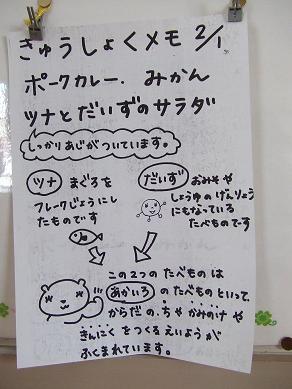 きゅうしょくメモ 2/1
ポークカレー. みかん
ツナとだいずのサラダ
しっかりあじがついています。
ツナ まぐろを
フレークじょうにし
たものです
だいず おみそや
しょうゆのげんりょう
にもなっている
たべものです
この2つのたべものは
あかいろ のたべものといって、
からだの、ちゃかみのけや
きんにくをつくるえいようが
ふくまれています。